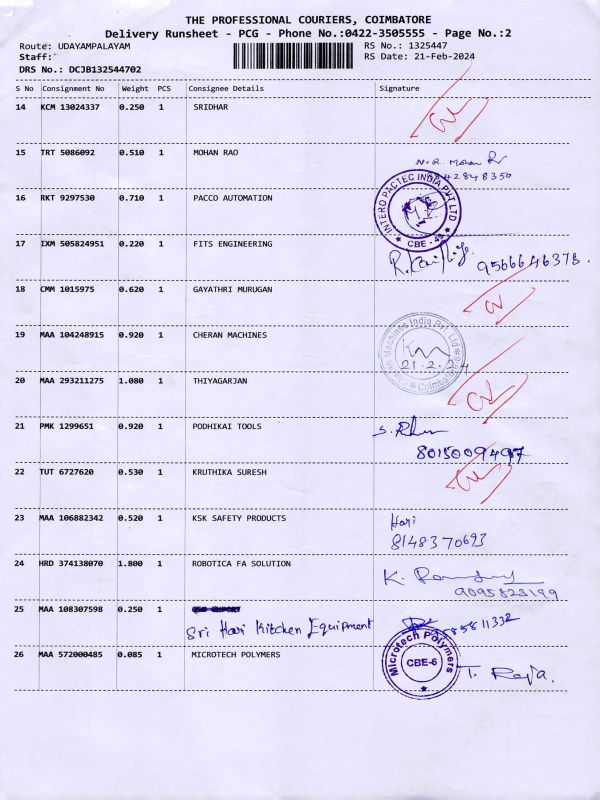 THE PROFESSIONAL COURIERS, COIMBATORE
Delivery Runsheet - PCG - Phone No.:0422-3505555 - Page No.:2
Route: UDAYAMPALAYAM RS No.: 1325447
Staff: RS Date: 21-Feb-2024
DRS No.: DCJB132544702
S No Consignment No Weight PCS Consignee Details Signature
14 KCM 13024337 0.250 1 SRIDHAR
15 TRT 5086092 0.510 1 MOHAN RAO
16 RKT 9297530 0.710 1 PACCO AUTOMATION
INTERO PACTEC INDIA PVT LTD
CBE - 45
17 IXM 505824951 0.220 1 FITS ENGINEERING
9566646378.
18 CMM 1015975 0.620 1 GAYATHRI MURUGAN
19 MAA 104248915 0.920 1 CHERAN MACHINES
Cheran Machines India Pvt Ltd
Coimbatore
21.2.24
20 MAA 293211275 1.080 1 THIYAGARJAN
21 PMK 1299651 0.920 1 PODHIKAI TOOLS
8015009497
22 TUT 6727620 0.530 1 KRUTHIKA SURESH
23 MAA 106882342 0.520 1 KSK SAFETY PRODUCTS Hari
8148370693
24 HRD 374138070 1.800 1 ROBOTICA FA SOLUTION
9095823199
25 MAA 108307598 0.250 1
Sri Hari Kitchen Equipment
26 MAA 572000485 0.085 1 MICROTECH POLYMERS
Microtech Polymers
CBE-6
T. Raja.